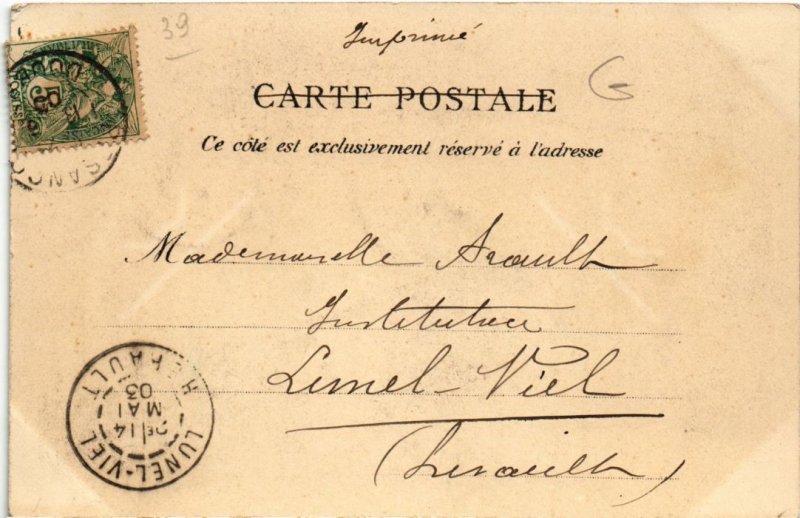 39
Imprimé
CARTE POSTALE
Ce côté est exclusivement réservé à l'adresse
Mademoiselle Arault
Institutrice
Lunel-Viel
(Hérault)
LUNEL-VIEL
2E 14
MAI
03
HERAULT